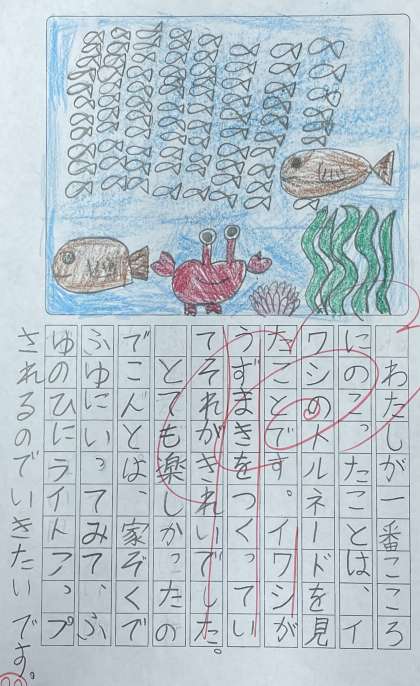 わたしが一番こころ
にのこったことは、イ
ワシのトルネードを見
たことです。イワシが
うずまきをつくってい
てそれがきれいでした。
とても楽しかったの
でこんとは、家ぞくで
ふゆにいってみて、ふ
ゆのひにライトアップ
されるのでいきたいです。